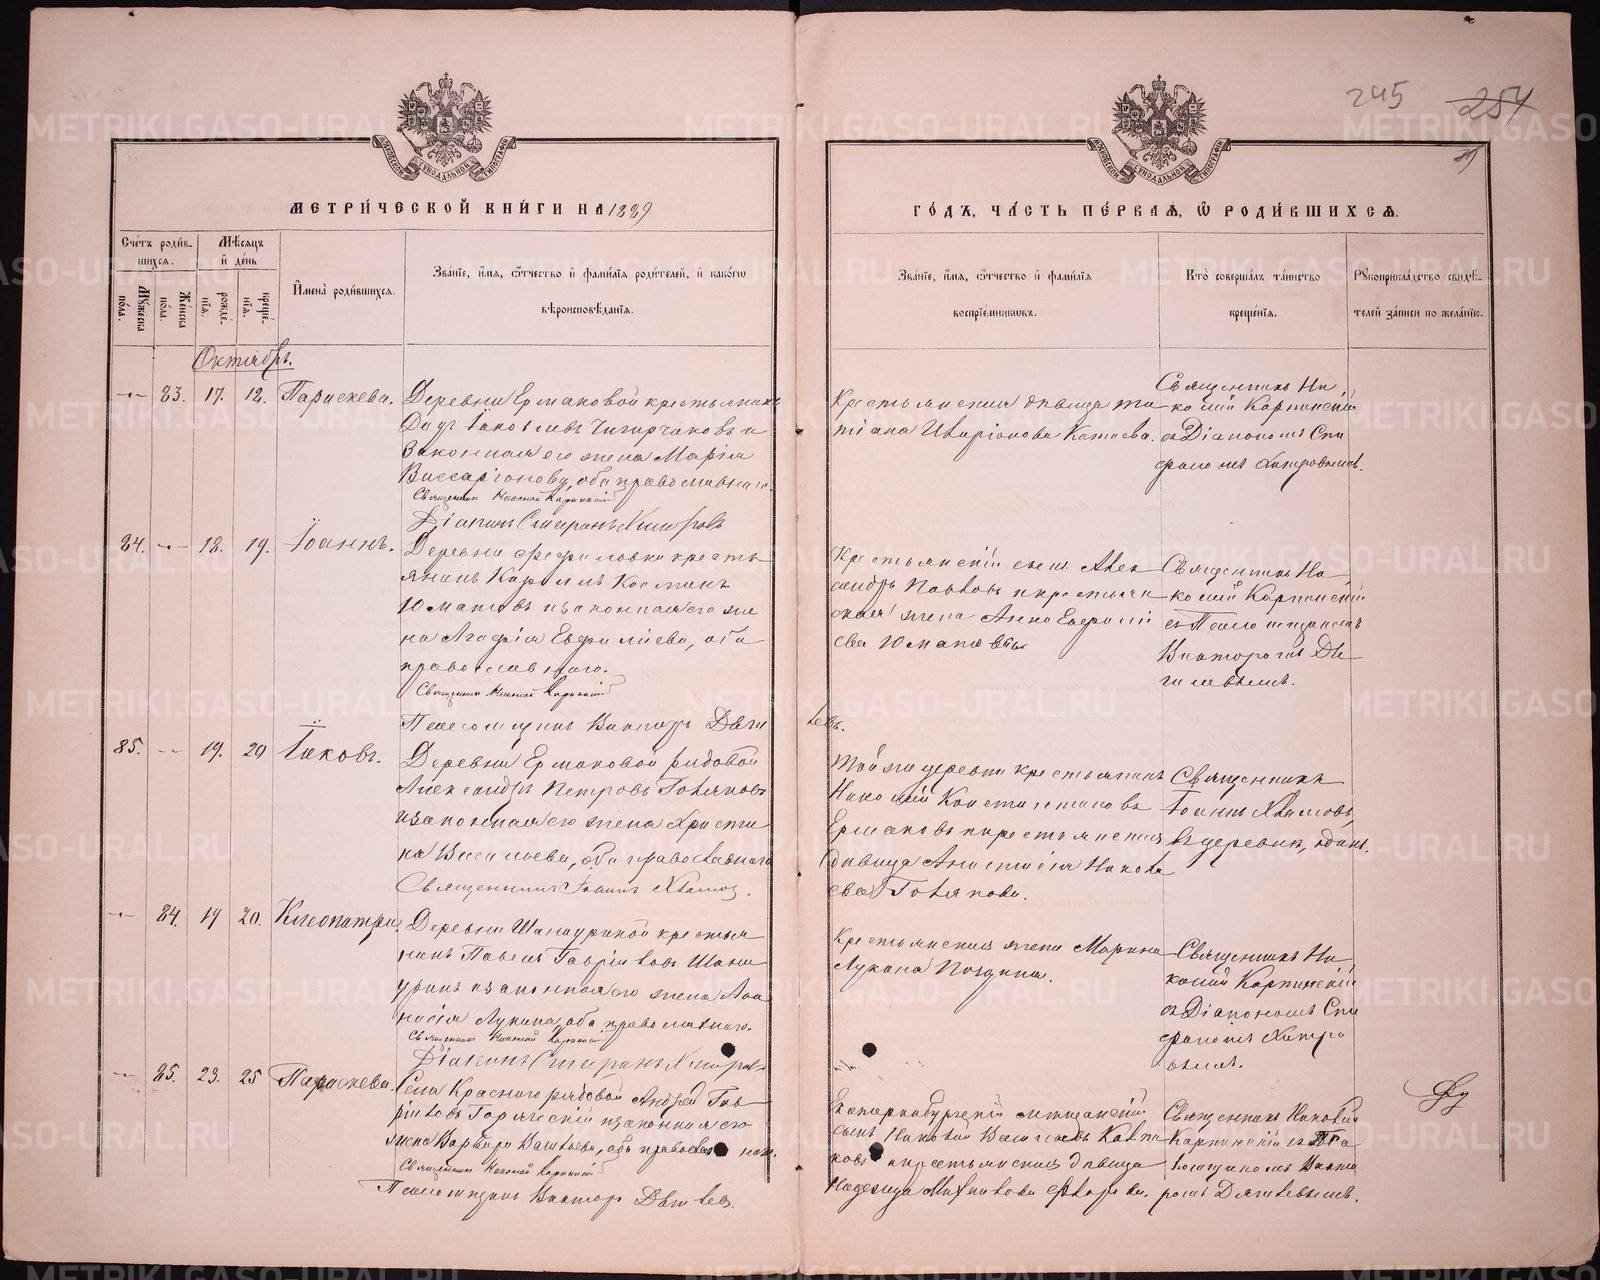 245 254
МОСКОВСКОЙ СѴНОДАЛЬНОЙ ТИПОГРАФІИ
МОСКОВСКОЙ СѴНОДАЛЬНОЙ ТИПОГРАФІИ
МЕТРИ́ЧЕСКОЙ КНИ́ГИ НА 1889
ГО́ДЪ, ЧА́СТЬ ПЕ́РВАѦ, Ѿ РОДИ́ВШИХСѦ.
Сче́тъ роди́в-
шихся.
Мѣ́сяцъ
и҆ де́нь
Му́жеска
по́ла.
Же́нска
по́ла.
рожде́-
нїя.
креще́-
нїя.
И҆мена̀ роди́вшихся.
Зва́нїе, и҆́мя, ѻ҆́тчество и҆ фами́лїя роди́телей, и҆ како́гѡ
вѣроисповѣ́данїя.
Зва́нїе, и҆́мя, ѻ҆́тчество и҆ фами́лїя
воспрїе́мникѡвъ.
Кто̀ соверша́лъ та́инство
креще́нїя.
Рꙋкоприкла́дство свидѣ́-
телей за́писи по жела́нїю.
Октябрь.
83. 17. 18. Параскева.
Деревни Ермаковой крестьянинъ
Іаковлевъ Чигирчаковъ и
законная его жена Марія
Виссаріонова, оба православнаго.
Священникъ Николай Карпинскій
Діаконъ Спиридонъ Хитровъ
Крестьянская дѣвица Та
тіана Иларіонова Катаева.
Священникъ Ни
колай Карпинскій
съ Діакономъ Спи
ридономъ Хитровымъ.
84. 18. 19. Іоаннъ.
Деревни крестья
янинъ Кирилъ Косминъ
Юмановъ и законная его же
на Агафія Евфиміева, оба
православнаго.
Священникъ Николай Карпинскій
Псаломщикъ Викторъ Дяги
левъ.
Крестьянскій сынъ Алек
сандръ Павловъ и крестьян
ская жена Анна
ева Юмановы.
Священникъ Ни
колай Карпинскій
съ Псаломщикомъ
Викторомъ Дя
гилевымъ.
85. 19. 20 Іаковъ.
Деревни Ермаковой рядовой
Александръ Петровъ Говляковъ
и законная его жена Христи
на Васильева, оба православнаго
Священникъ Іоаннъ Хламовъ.
Той же деревни крестьянинъ
Николай Константиновъ
Ермаковъ и крестьянская
дѣвица Анастасія Никола
ева Говлякова.
Священникъ
Іоаннъ Хламовъ,
въ деревнѣ, одинъ.
84. 19 20. Клеопатра.
Деревни Шанауриной крестья
нинъ Павелъ Гавріиловъ Шана
уринъ и законная его жена Ана
насія Лукина, оба православнаго.
Священникъ Николай Карпинскій
Діаконъ Спиридонъ Хитровъ
Крестьянская жена Марина
Лукина Поздина.
Священникъ Ни
колай Карпинскій
съ Діакономъ Спи
ридономъ Хитро
вымъ.
85. 23. 25 Параскева.
Села Краснаго рядовой Андрей Гав
ріиловъ и законная его
жена Варвара Васильева, оба православнаго.
Священникъ Николай Карпинскій
Псаломщикъ Викторъ Дягилевъ.
Екатеринбургскій мѣщанскій
сынъ Николай Васильевъ
и крестьянская дѣвица
Надежда Михаилова
Священникъ Николай
Карпинскій съ Пса
ломщикомъ Викто
ромъ Дягилевымъ.
METRIKI.GASO-URAL.RU